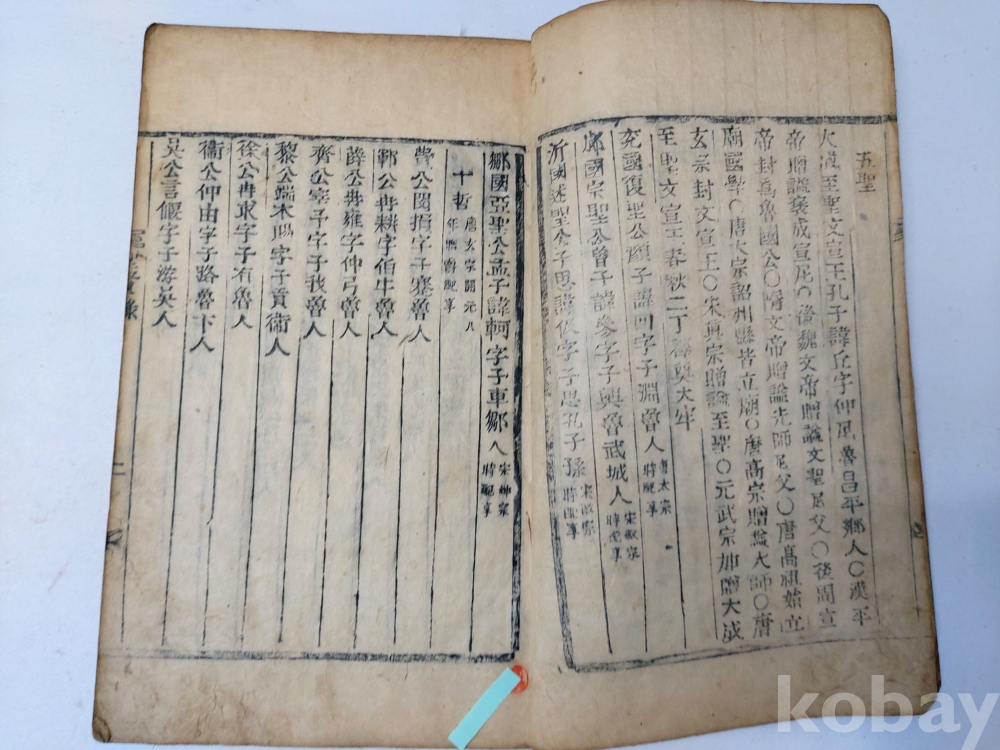 五聖
大成至聖文宣王孔子諱丘字仲尼魯昌平鄉人〇漢平
帝贈諡褒成宣尼〇後魏文帝贈諡文聖尼父〇後周宣
帝封爲魯國公〇隋文帝贈諡先師尼父〇唐高祖始立
廟國學〇唐太宗詔州縣皆立廟〇唐高宗贈諡太師〇唐
玄宗封文宣王〇宋眞宗贈諡至聖〇元武宗加贈大成
至聖文宣王春秋二丁釋奠大牢
兗國復聖公顔子諱回字子淵魯人 唐太宗時配享
郕國宗聖公曾子諱參字子輿魯武城人 宋度宗時配享
沂國述聖公子思諱伋字子思孔子孫 宋度宗時配享
鄒國亞聖公孟子諱軻字子車鄒人 宋神宗時配享
十哲 唐玄宗開元八年瞻配享
費公閔損字子騫魯人
鄆公冉耕字伯牛魯人
薛公冉雍字仲弓魯人
齊公宰子字子我魯人
黎公端木賜字子貢衛人
徐公冉求字子有魯人
衞公仲由字子路魯卞人
吳公言偃字子游吳人
二
kobay